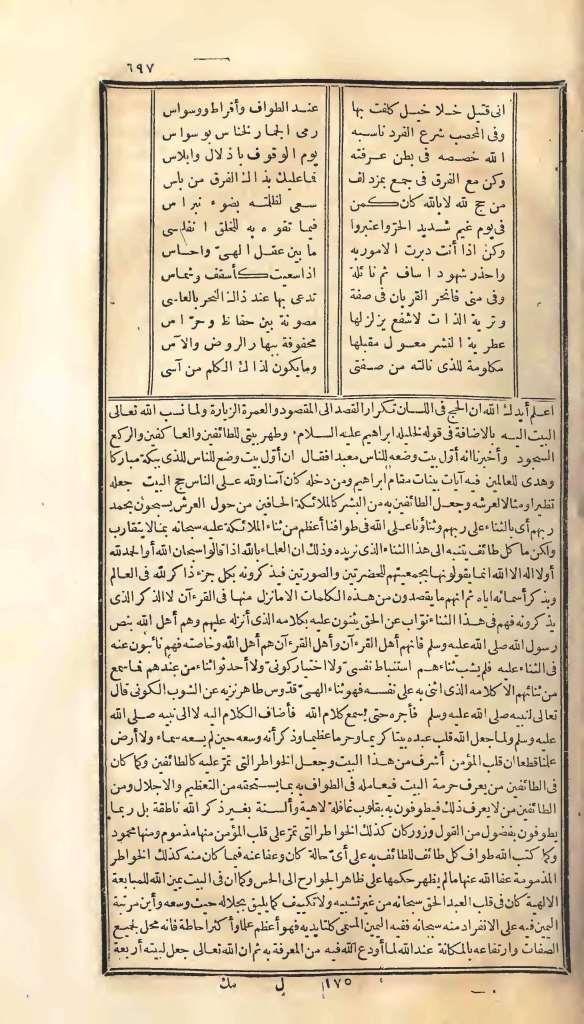 ٦٩٧
انى قتيل خلاخيل كلفت بها عند الطواف وأقراط ووسواس
وفى المحصب شرع الفرد ناسبه رمى الجمار لخناس بوسواس
الله خصصه فى بطن عرفته يوم الوقوف باذلال وابلاس
وكن مع الفرق فى جمع بمزدلف فما عليك بذاك الفرق من باس
من حج لله لا بالله كان كمن سعى لظلته بضوء نبراس
فى يوم غيم شديد الحر واعتبروا فيما تفوه به للخلق انفاسى
وكن اذا أنت دبرت الامور به ما بين عقل الهىّ واحساس
واحذر شهود اساف ثم نائلة اذا سعيت كأسقف وشماس
وفى منى فانحر القربان فى صفة تدعى بها عند ذاك النحر بالعاسى
وترية الذات لا شفع يزلزلها مصونة بين حفاظ وحرّاس
عطرية النشر معسول مقبلها محفوفة ببهار الروض والآس
مكلومة للذى نالته من صفتى وما يكون لذاك الكلم من آسى
اعلم أيدك الله ان الحج فى اللسان تكرار القصد الى المقصود والعمرة الزيارة ولما نسب الله تعالى
البيت اليه بالاضافة فى قوله لخليله ابراهيم عليه السلام وطهر بيتى للطائفين والعاكفين والركع
السجود وأخبرنا انه أول بيت وضعه للناس معبدا فقال ان أول بيت وضع للناس للذى ببكة مباركا
وهدى للعالمين فيه آيات بينات مقام ابراهيم ومن دخله كان آمنا ولله على الناس حج البيت جعله
نظيرا ومثالا لعرشه وجعل الطائفين به من البشر كالملائكة الحافين من حول العرش يسبحون بحمد
ربهم أى بالثناء على ربهم وثناؤنا على الله فى طوافنا أعظم من ثناء الملائكة عليه سبحانه بما لا يتقارب
ولكن ما كل طائف يتنبه الى هذا الثناء الذى نريده وذلك ان العلماء بالله اذا قالوا سبحان الله أو الحمد لله
أو لا اله الا الله انما يقولونها بجمعيتهم للحضرتين والصورتين فيذكرونه بكل جزء ذاكر لله فى العالم
وبذكر أسمائه اياه ثم انهم ما يقصدون من هذه الكلمات الا ما نزل منها فى القرءآن لا الذكر الذى
يذكرونه فهم فى هذا الثناء نوّاب عن الحق يثنون عليه بكلامه الذى أنزله عليهم وهم أهل الله بنص
رسول الله صلى الله عليه وسلم فانهم أهل القرءآن وأهل القرءآن هم أهل الله وخاصته فهم نائبون عنه
فى الثناء عليه فلم يشب ثناءهم استنباط نفسىّ ولا اختيار كونىّ ولا أحدثوا ثناء من عندهم فما سمع
من ثنائهم الا كلامه الذى اثنى به على نفسه فهو ثناء الهىّ قدّوس طاهر نزيه عن الشوب الكونى قال
تعالى لنبيه صلى الله عليه وسلم فأجره حتى يسمع كلام الله فأضاف الكلام اليه لا الى نبيه صلى الله
عليه وسلم ولما جعل الله قلب عبده بيتا كريما وحرما عظيما وذكر أنه وسعه حين لم يسعه سماء ولا أرض
علمنا قطعا ان قلب المؤمن أشرف من هذا البيت وجعل الخواطر التى تمرّ عليه كالطائفين وكما كان
فى الطائفين من يعرف حرمة البيت فيعامله فى الطواف به بما يستحقه من التعظيم والاجلال ومن
الطائفين من لا يعرف ذلك فيطوفون به بقلوب غافلة لاهية وألسنة بغير ذكر الله ناطقة بل ربما
يطوفون بفضول من القول وزور كان كذلك الخواطر التى تمرّ على قلب المؤمن منها مذموم ومنها محمود
وكما كتب الله طواف كل طائف للطائف به على أىّ حالة كان وعفا عنه فيما كان منه كذلك الخواطر
المذمومة عفا الله عنها ما لم يظهر حكمها على ظاهر الجوارح الى الحس وكما ان فى البيت يمين الله للمبايعة
الالهية كان فى قلب العبد الحق سبحانه من غير تشبيه ولا تكييف كما يليق بجلاله حيث وسعه وأين مرتبة
اليمين فيه على الانفراد منه سبحانه ففيه اليمين المسمى كلتا يديه فهو أعظم علما وأكثر احاطة فانه محل لجميع
الصفات وارتفاعه بالمكانة عند الله لما أودع الله فيه من المعرفة به ثم ان الله تعالى جعل لبيته أربعة
١٧٥ ل مك